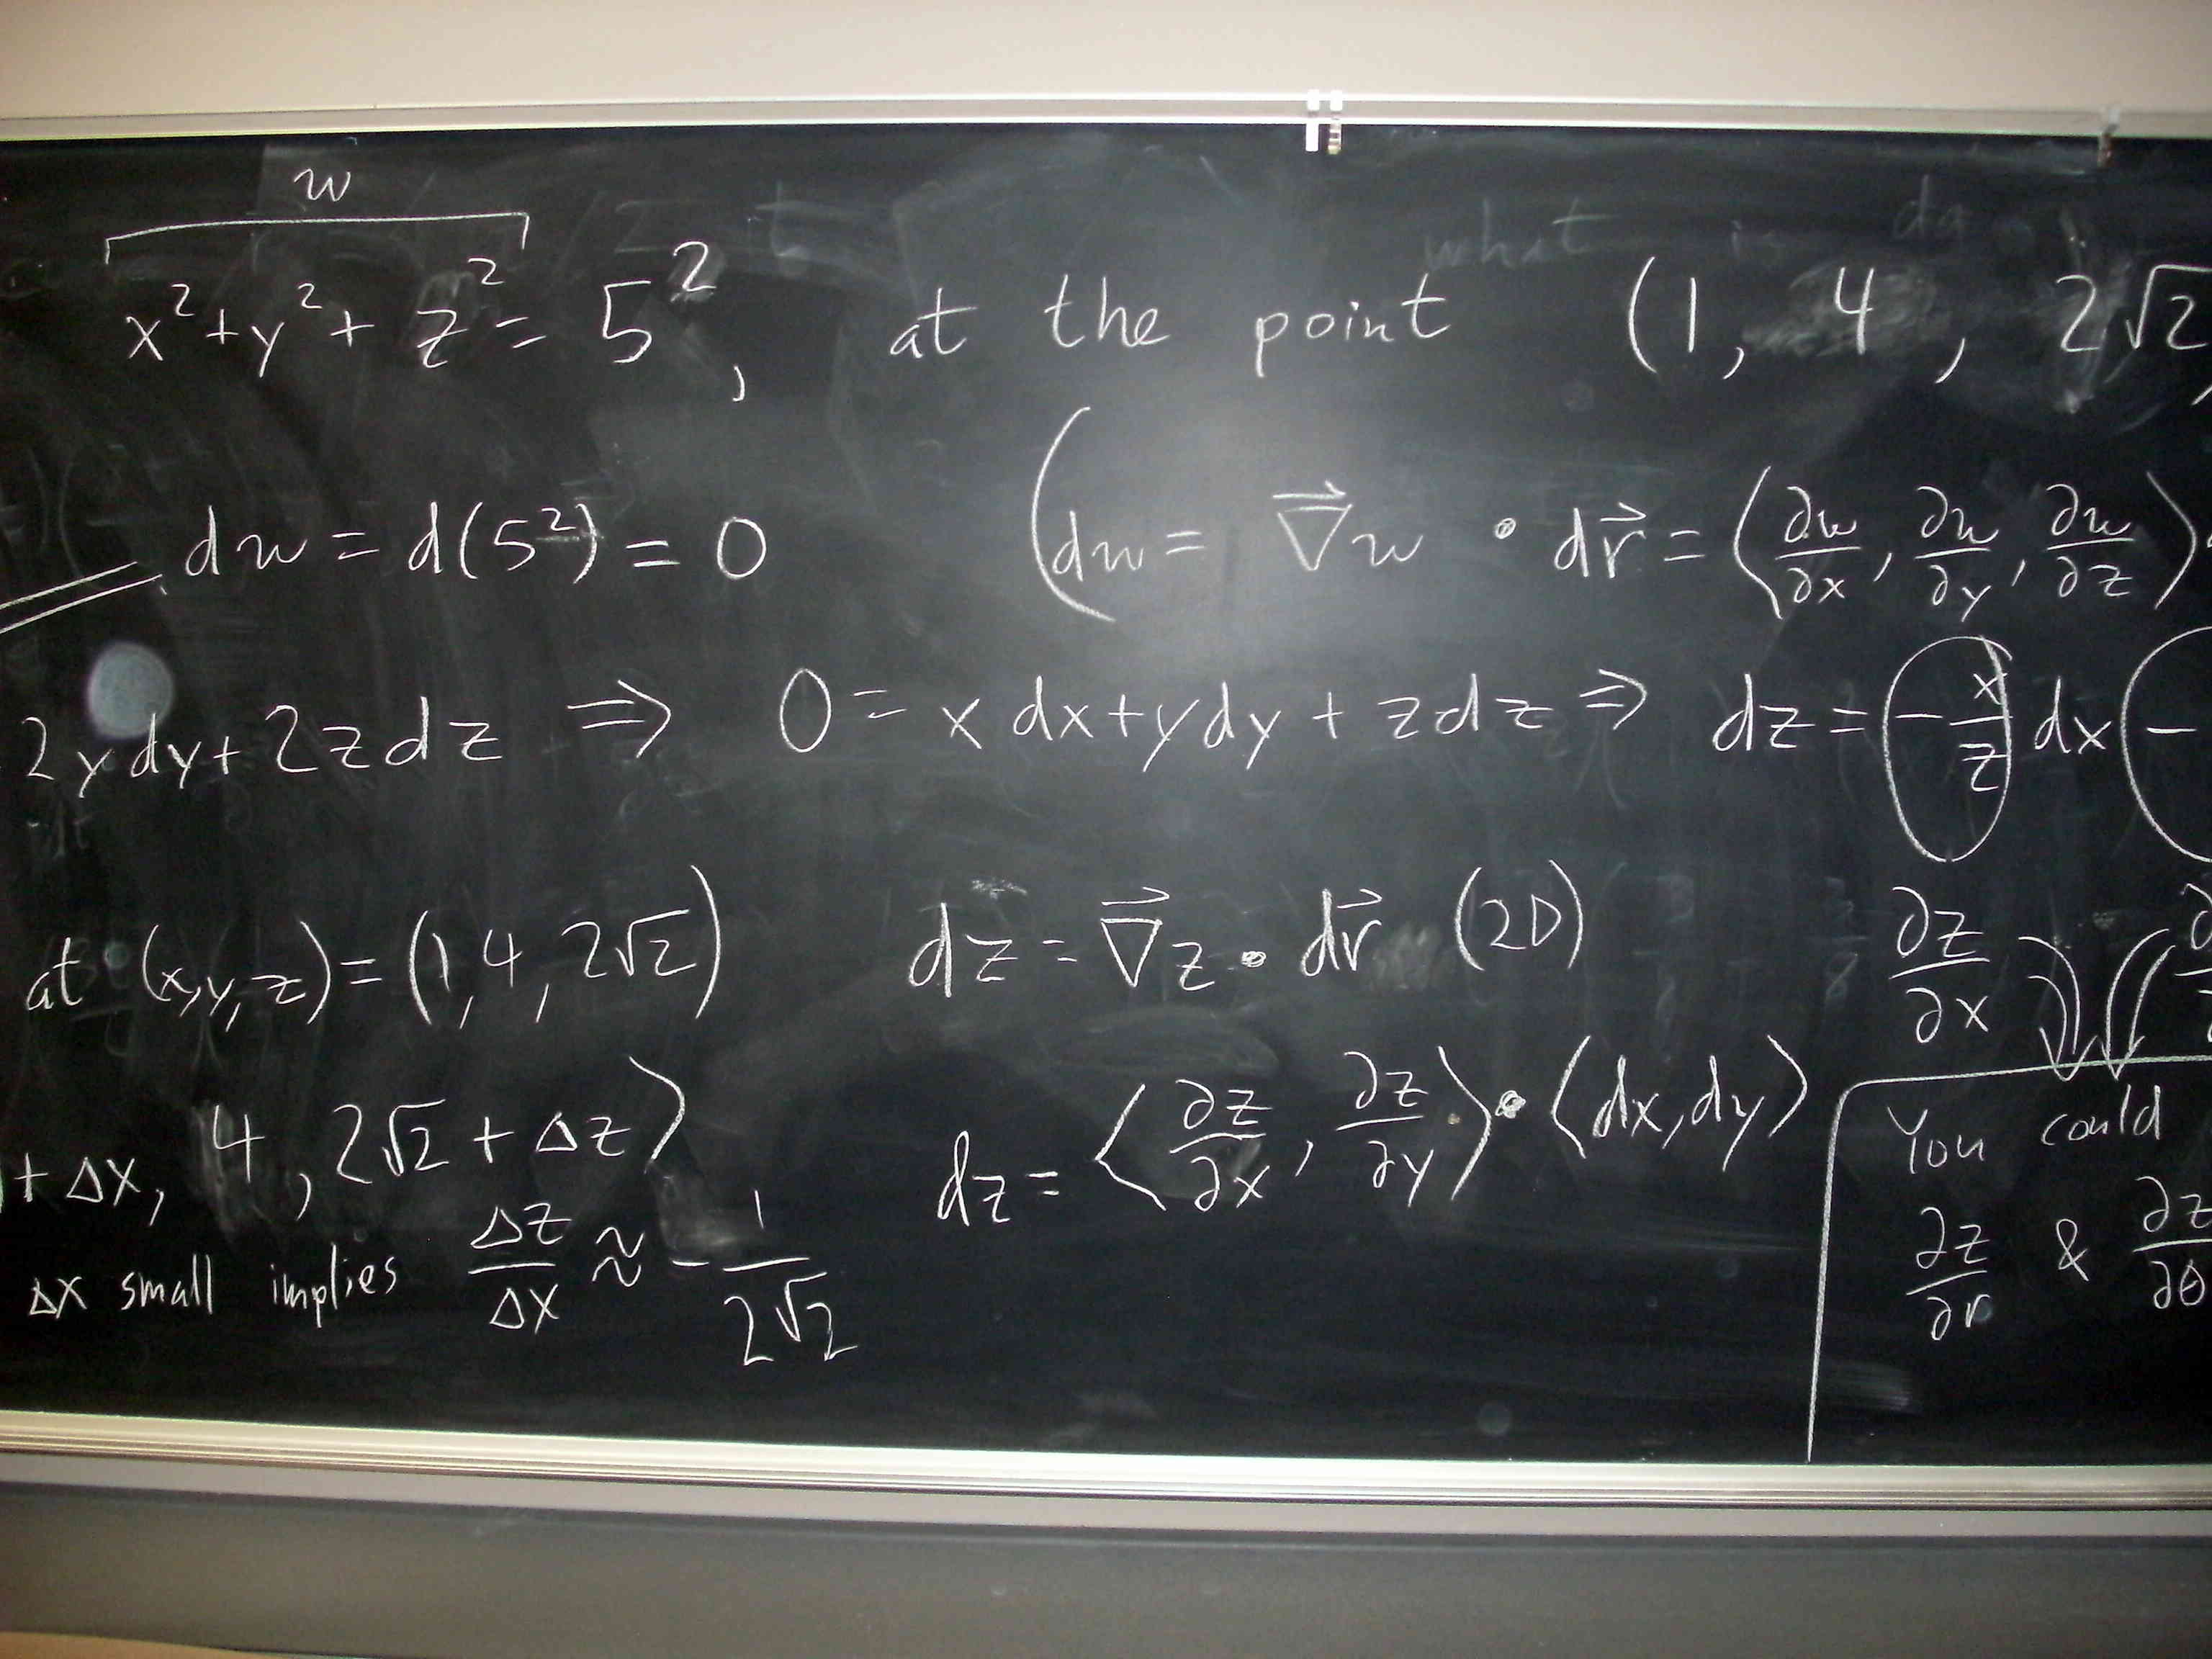 w
x²+y²+ z² = 5², at the point (1, 4, 2√2)
dw = d(5²) = 0 (dw = ∇⃗w • dr⃗ = ⟨∂w/∂x, ∂w/∂y, ∂w/∂z⟩
2ydy+2zdz ⇒ 0 = x dx+ydy+zdz ⇒ dz = (-x/z) dx (-
at (x,y,z) = (1,4,2√2) dz = ∇⃗z • dr⃗ (2D) ∂z/∂x
+Δx, 4, 2√2+Δz⟩ dz = ⟨∂z/∂x, ∂z/∂y⟩ • ⟨dx,dy⟩ You could
Δx small implies Δz/Δx ≈ -1/2√2 ∂z/∂r & ∂z/∂θ